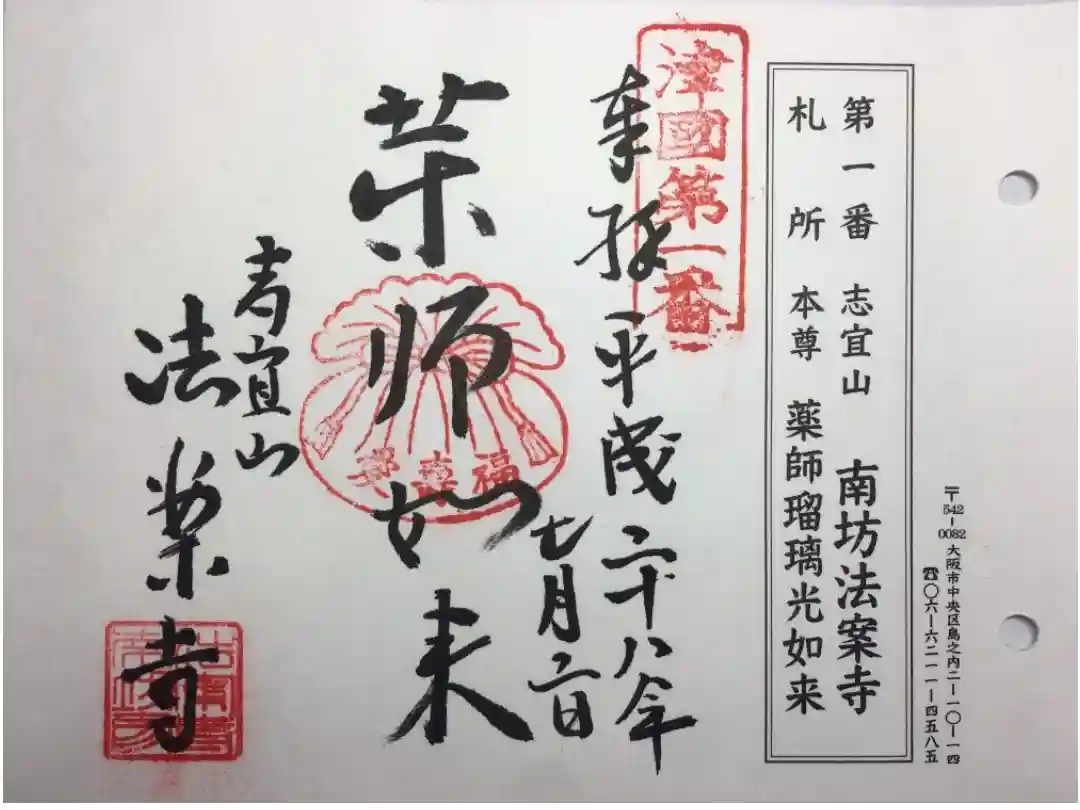 〒542-0082 大阪市中央区島之内二-一〇-一四
☎〇六-六二一一-四五八五
第一番 志宜山 南坊法案寺
札所 本尊 薬師瑠璃光如来
津國第一番
奉拝 平成二十八年
七月二日
薬師如来
福
志宜山
法案寺